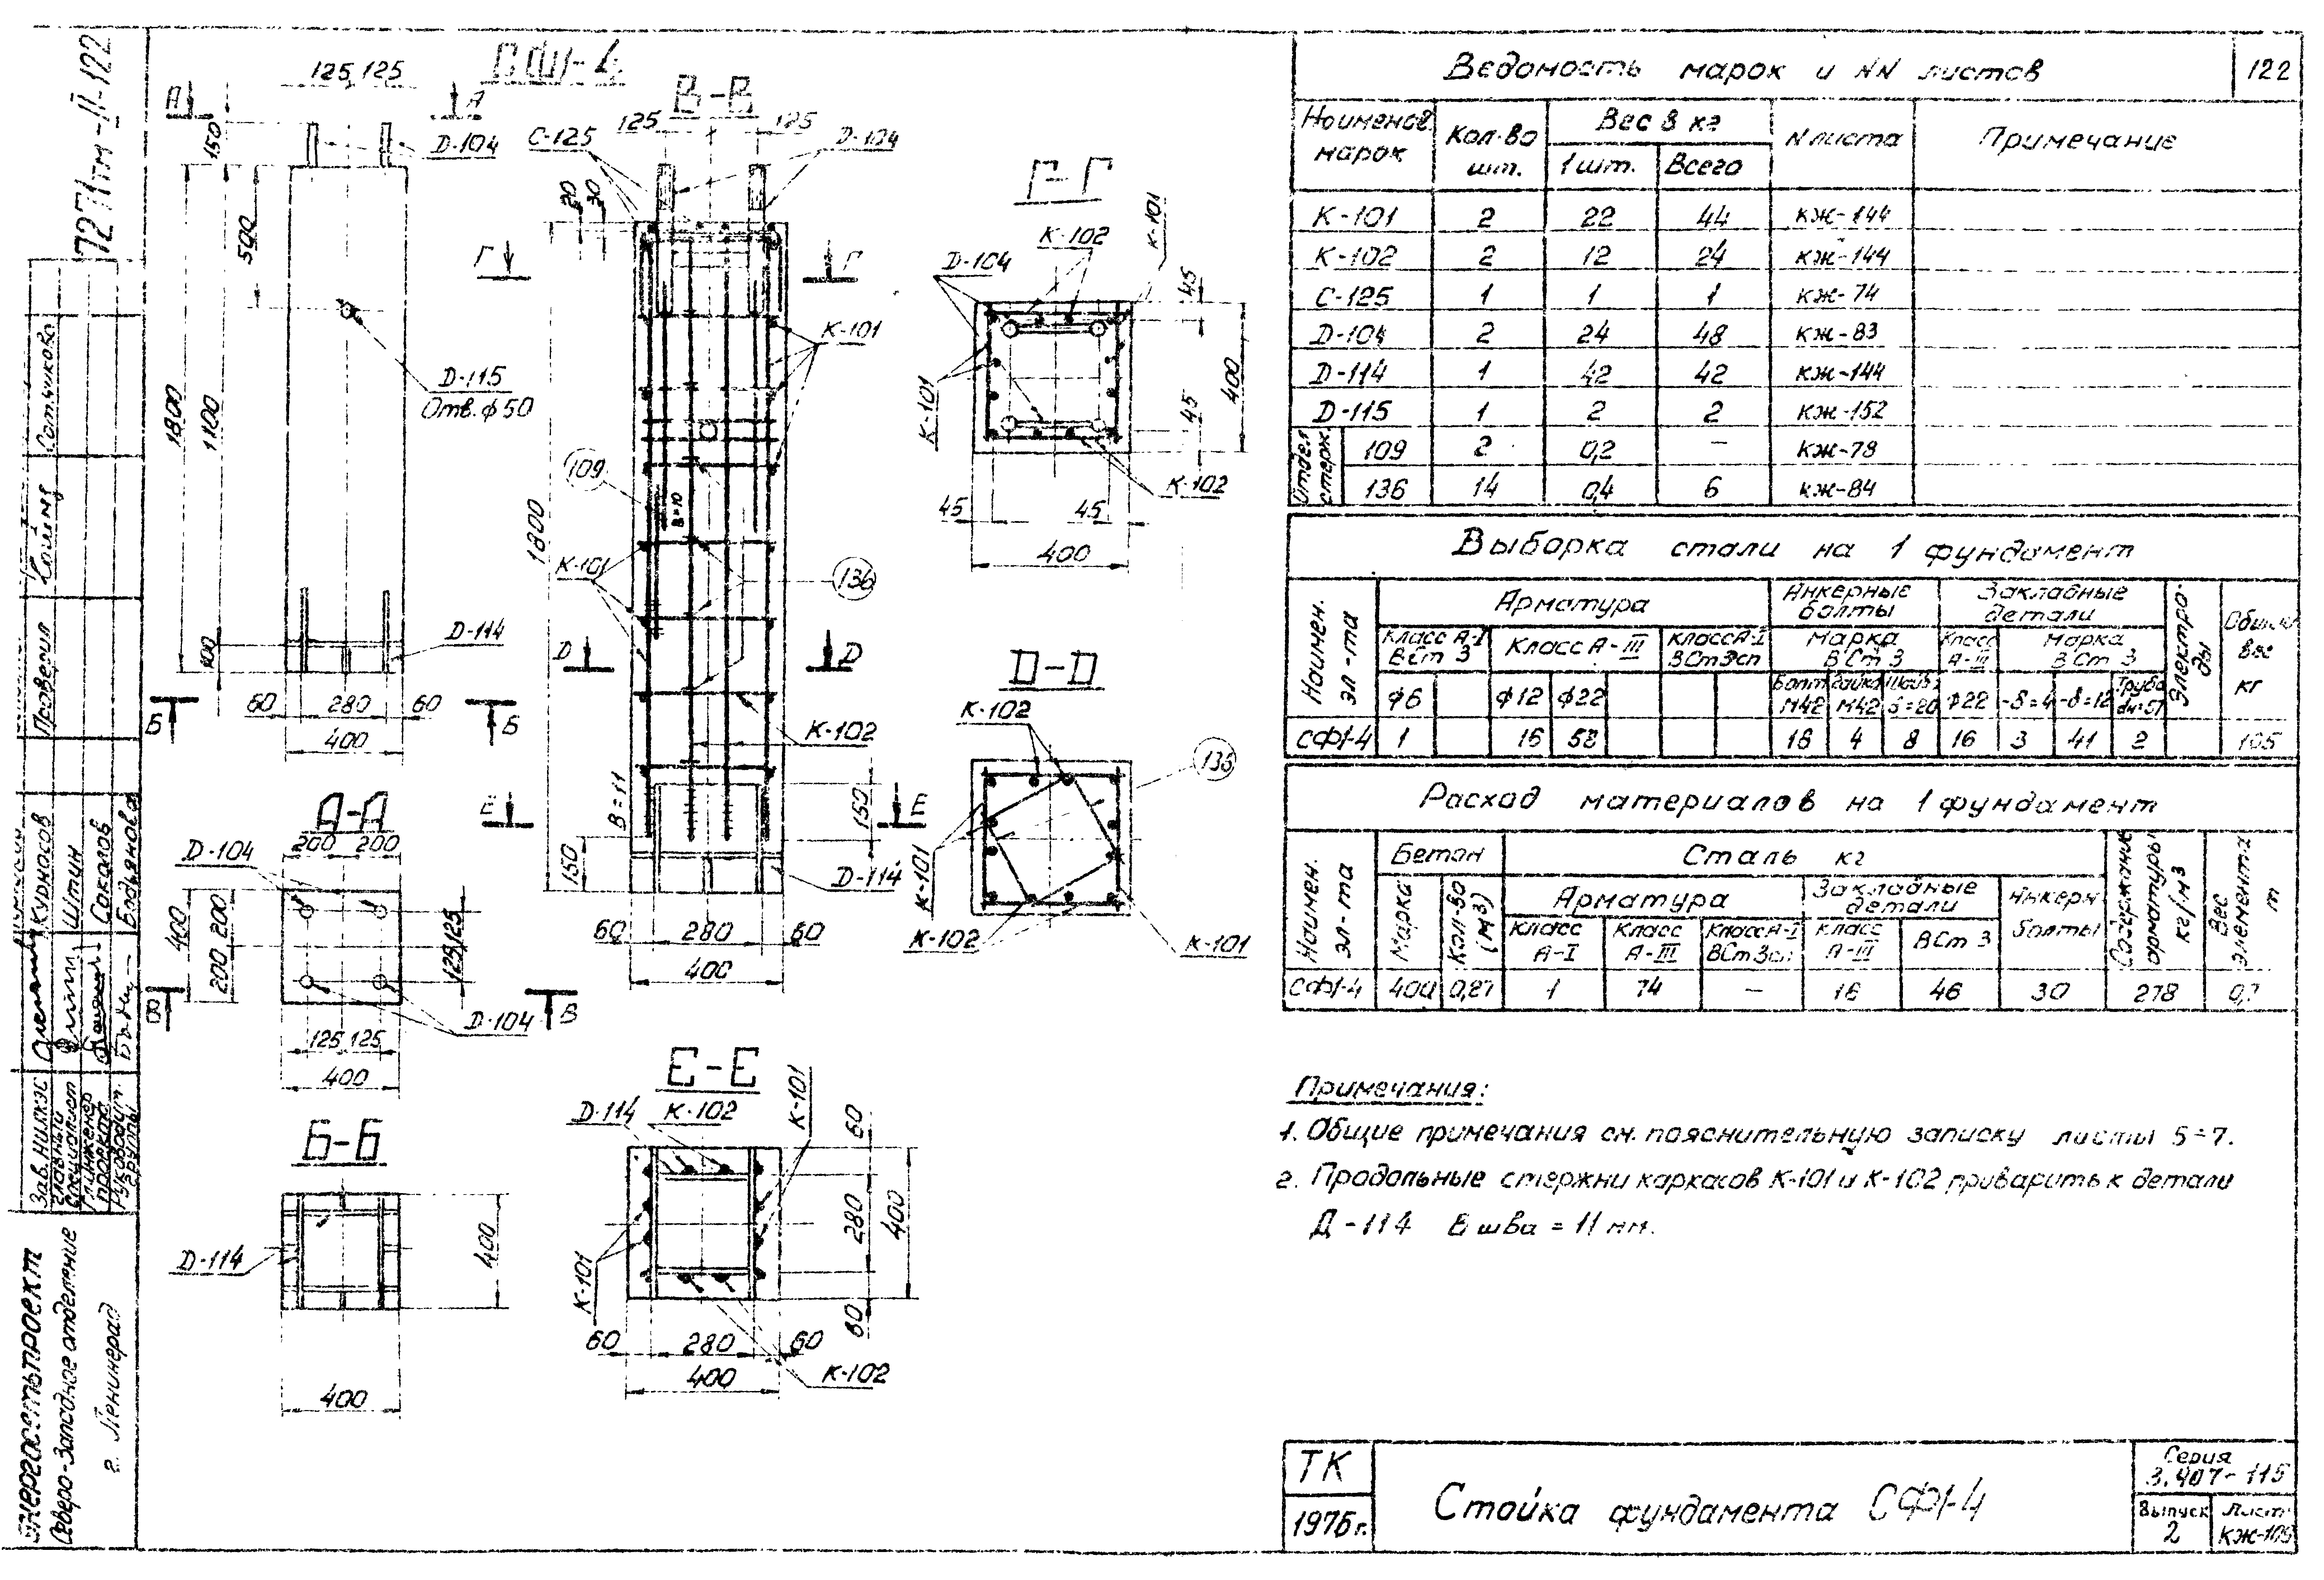 7271тм-II-122
СФ1-4
125 125
А А
150
D-104
590
1800
1100
D-115
Отв. ф50
D-114
100
60 280 60
Б Б
400
В-В
С-125
125 125
D-104
20 30
Г Г
К-101
109
В=10
1800
К-101
136
D D
К-102
В=11
Е Е
150
150
D-114
60 280 60
400
Г-Г
К-102
К-101
D-104
45
К-101
45
400
К-102
45 45
400
D-D
К-102
К-101
К-102
К-101
А-А
D-104
200 200
400
200 200
125 125
В В
D-104
125 125
400
Б-Б
D-114
400
400
Е-Е
D-114 К-102
К-101
60
280
400
60
К-101
60 280 60
К-102
400
Ведомость марок и NN листов
122
Наименов. марок
Кол-во шт.
Вес в кг
1 шт. Всего
N листа
Примечание
К-101 2 22 44 КЖ-144
К-102 2 12 24 КЖ-144
С-125 1 1 1 КЖ-74
D-104 2 24 48 КЖ-83
D-114 1 42 42 КЖ-144
D-115 1 2 2 КЖ-152
Отдел. стерж.
109 2 0,2 — КЖ-78
136 14 0,4 6 КЖ-84
Выборка стали на 1 фундамент
Наимен. эл-та
Арматура
Анкерные болты
Закладные детали
Электроды
Общий вес кг
Класс А-I ВСт 3
Класс А-III
Класс А-I ВСт3сп
Марка ВСт 3
Класс А-III
Марка ВСт 3
ф6 ф12 ф22
Болт М42
Гайка М42
Шайб. δ=20
ф22 -δ=4 -δ=12
Труба dн=51
СФ1-4 1 16 58 18 4 8 16 3 41 2 165
Расход материалов на 1 фундамент
Наимен. эл-та
Бетон
Сталь кг
Содержание арматуры кг/м3
Вес элемента т
Марка
Кол-во (м3)
Арматура
Закладные детали
Анкерн. болты
Класс А-I
Класс А-III
Класс А-I ВСт 3сп
Класс А-III
ВСт 3
СФ1-4 400 0,27 1 74 — 16 46 30 278 0,7
Примечания:
1. Общие примечания см. пояснительную записку листы 5÷7.
2. Продольные стержни каркасов К-101 и К-102 приварить к детали
Д-114 В шва = 11 мм.
ТК
1976г.
Стойка фундамента СФ1-4
Серия
3.407-115
Выпуск
2
Лист
КЖ-109
Проверил
Зав. НИЛКЭС
Курносов
Главный специалист
Штин
Гл. инженер проекта
Соколов
Руководит. группы
Энергосетьпроект
Северо-Западное отделение
г. Ленинград